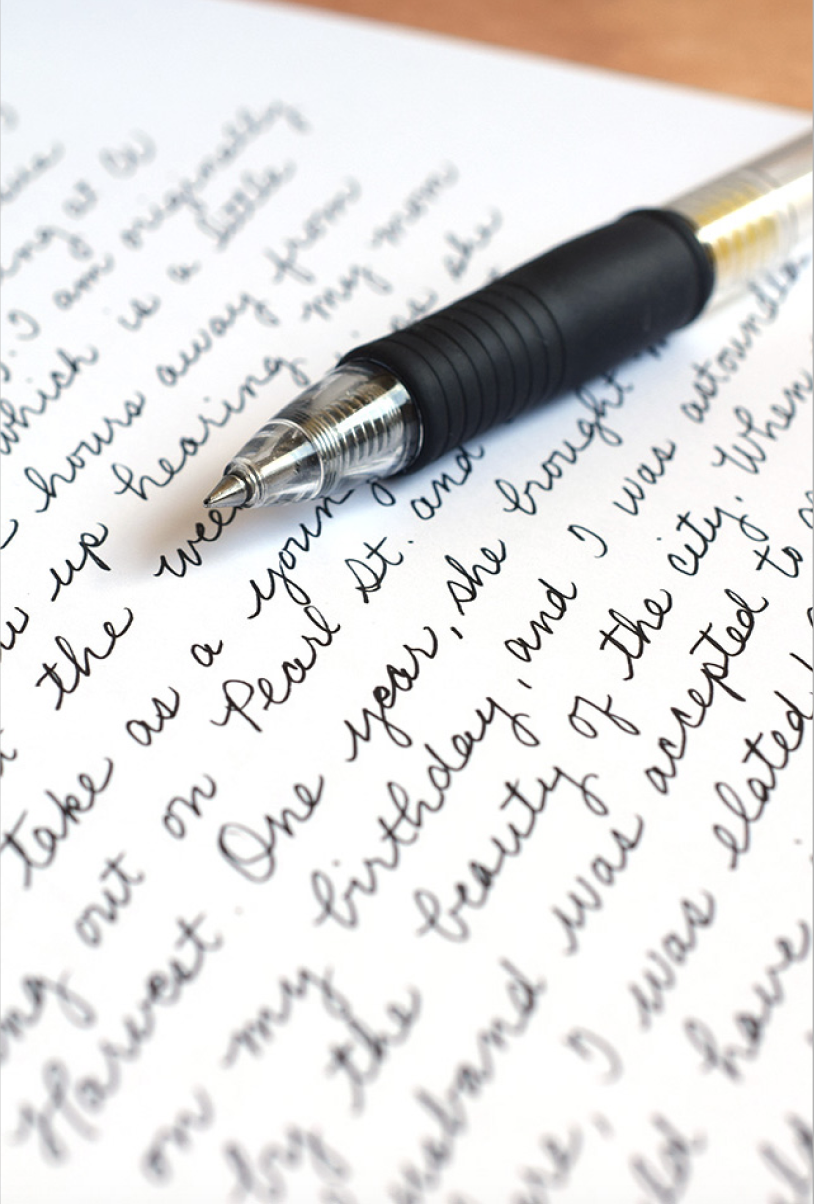 ing at CU
s. I am originally
which is a little
hours away from
up hearing my mom
the week she
take as a young
ng out on Pearl St. and
Harvest. One year, she brought
on my birthday, and I was astounded
by the beauty of the city. When
usband was accepted to
ere, I was elated!
ld have